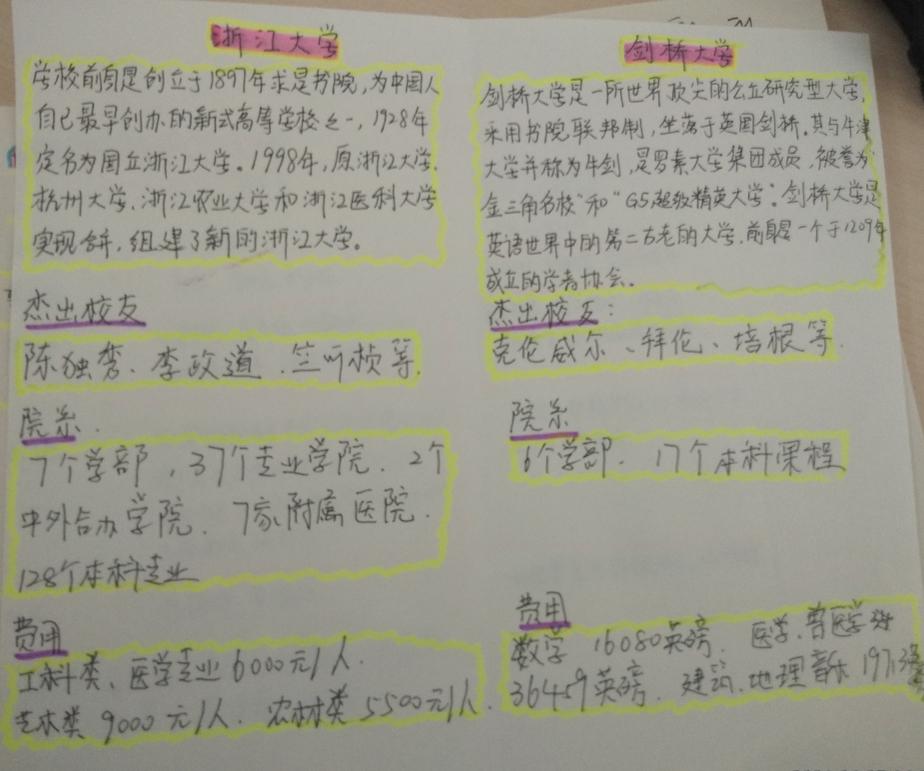 浙江大学
学校前身是创立于1897年求是书院，为中国人
自己最早创办的新式高等学校之一，1928年
定名为国立浙江大学。1998年，原浙江大学、
杭州大学、浙江农业大学和浙江医科大学
实现合并，组建了新的浙江大学。
杰出校友
陈独秀、李政道、竺可桢等
院系
7个学部，37个专业学院、2个
中外合办学院、7家附属医院、
128个本科专业
费用
工科类、医学专业6000元/人、
艺术类9000元/人、农林类5500元/人、
剑桥大学
剑桥大学是一所世界顶尖的公立研究型大学，
采用书院联邦制，坐落于英国剑桥。其与牛津
大学并称为牛剑，是罗素大学集团成员，被誉为
金三角名校"和"G5超级精英大学"。剑桥大学是
英语世界中的第二古老的大学，前身是一个于1209年
成立的学者协会。
杰出校友：
克伦威尔、拜伦、培根等
院系
6个学部、17个本科课程
费用
数学 16080英磅、医学、兽医学
36459英磅、建筑、地理